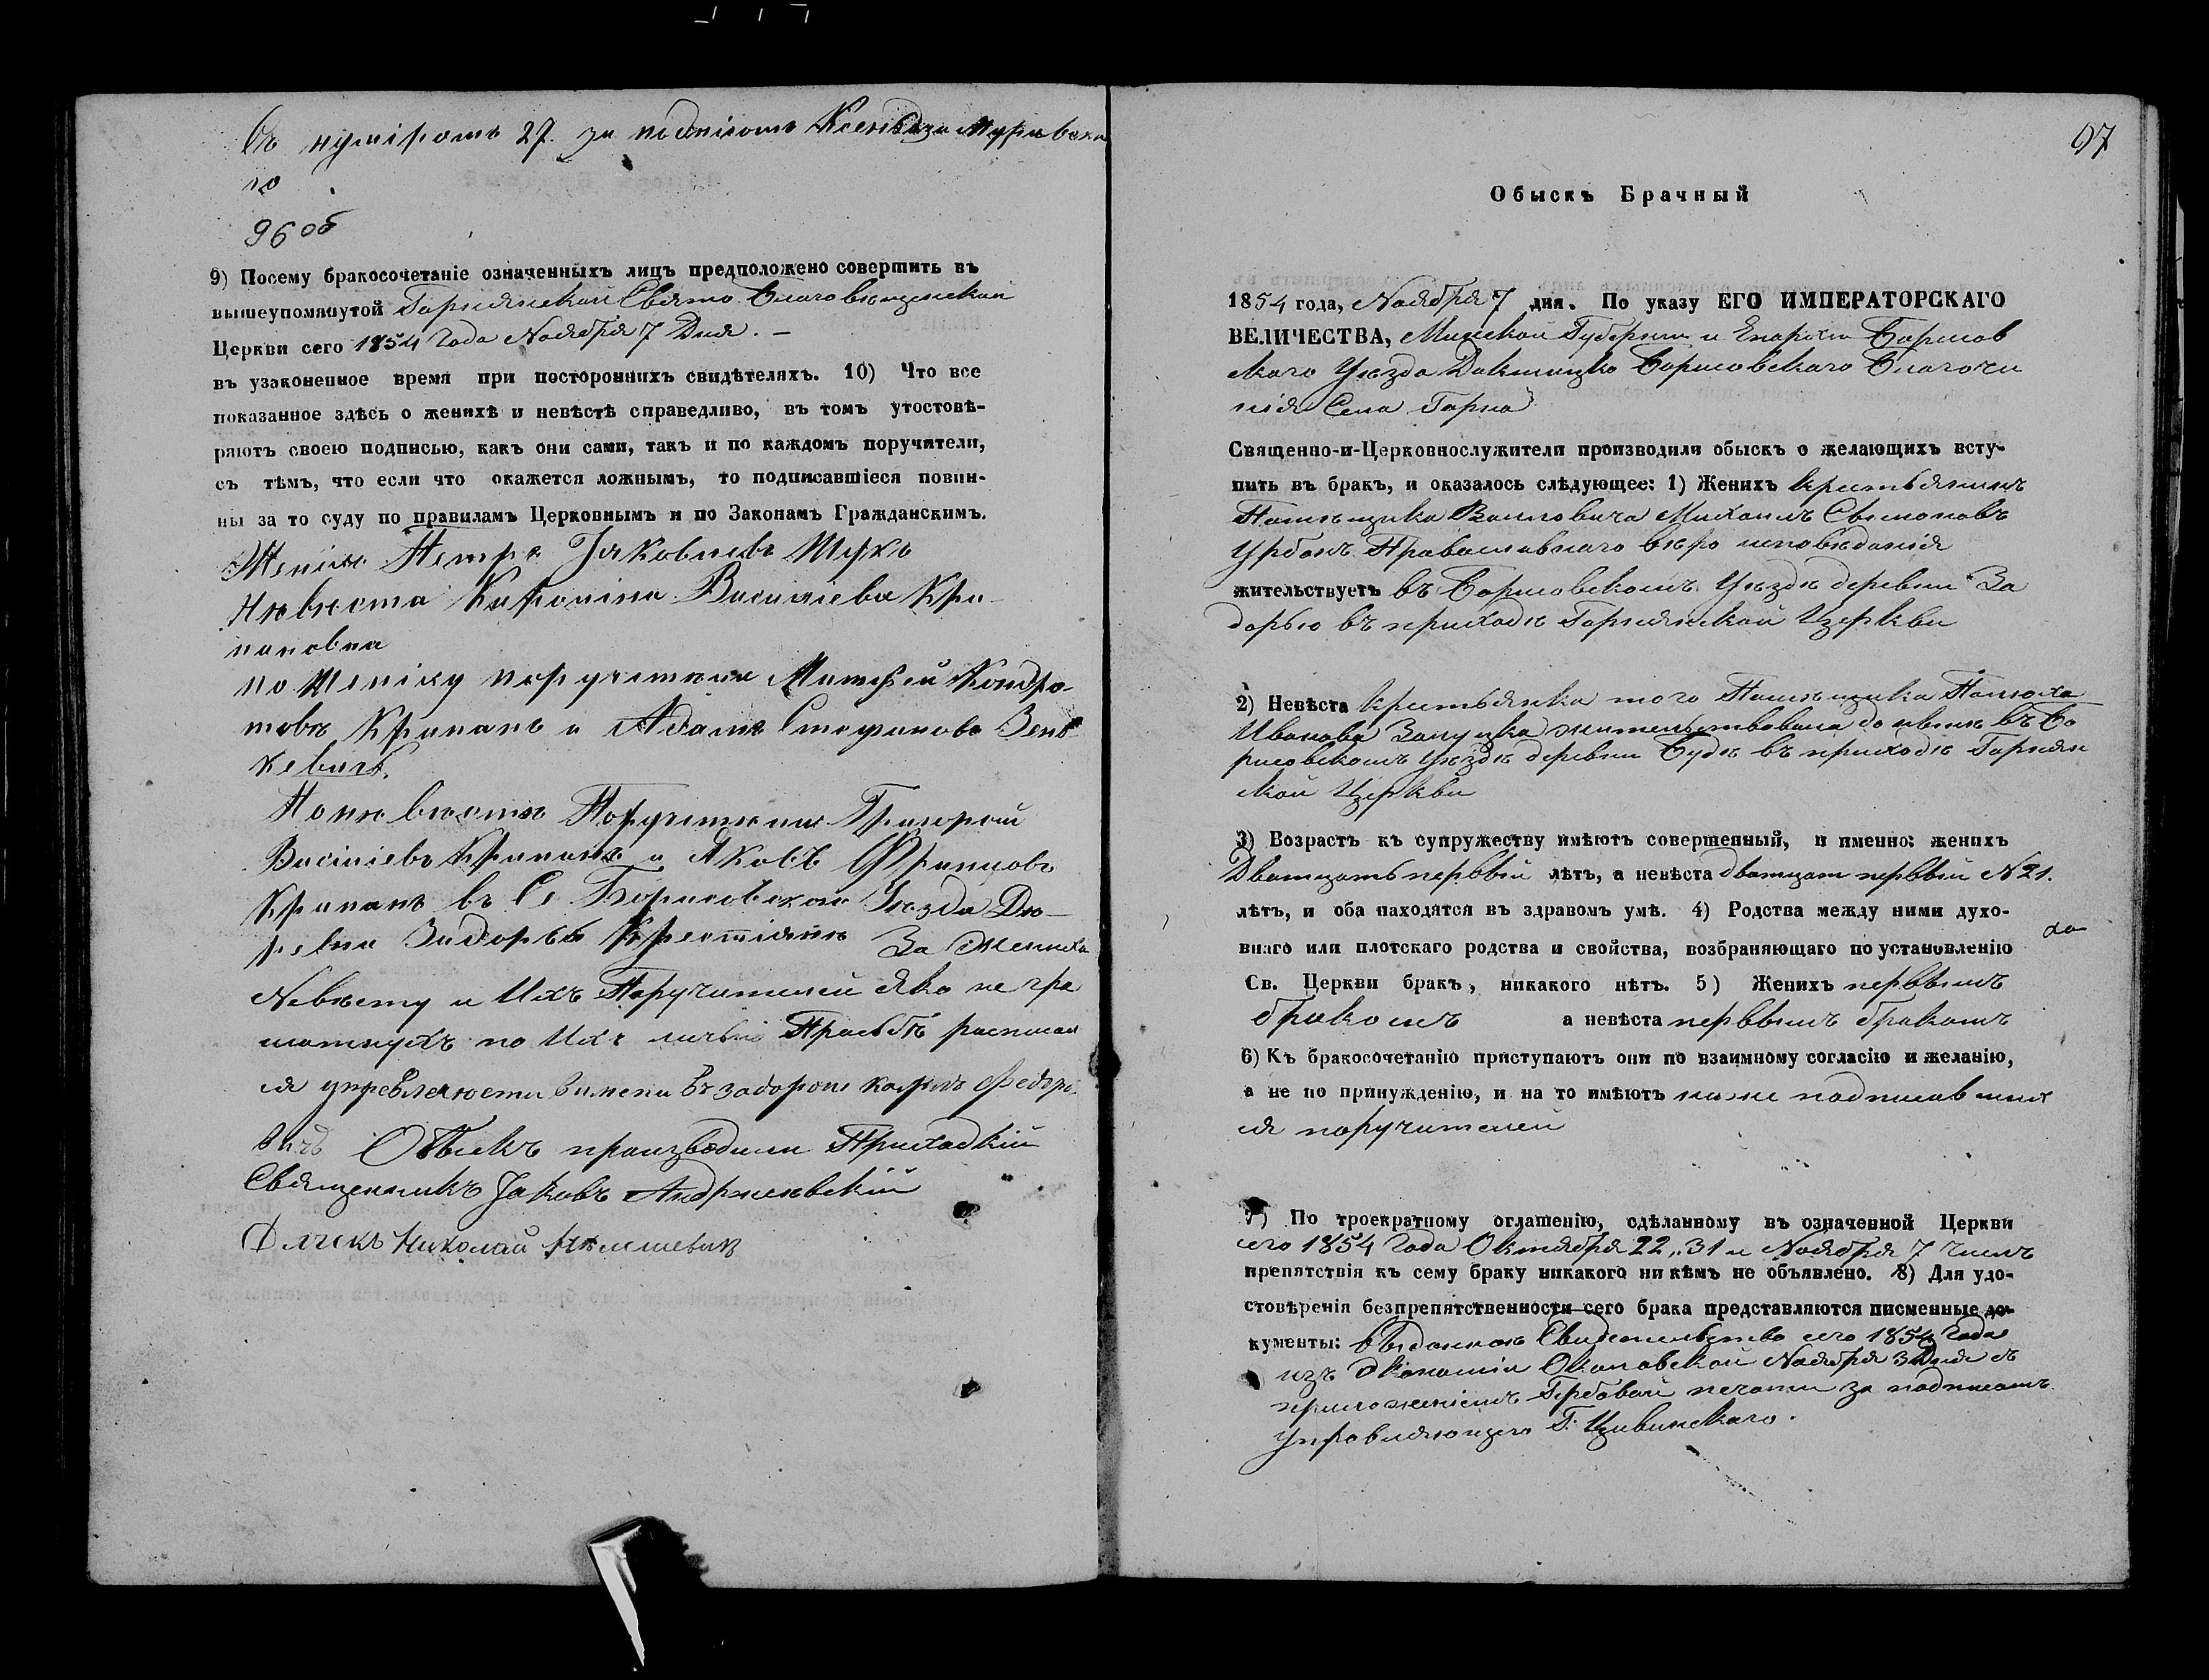 Съ нумѣромъ 27. за подписомъ Ксендза Муравска
го
96 об
9) Посему бракосочетаніе означенныхъ лицъ предположено совершить въ
вышеупомянутой Горнянской Свято Благовѣщенской
Церкви сего 1854 Года Ноября 7 Дня. —
въ узаконенное время при постороннихъ свидѣтеляхъ. 10) Что все
показанное здѣсь о женихѣ и невѣстѣ справедливо, въ томъ утостовѣ-
ряютъ своею подписью, какъ они сами, такъ и по каждомъ поручители,
съ тѣмъ, что если что окажется ложнымъ, то подписавшіеся повин-
ны за то суду по правиламъ Церковнымъ и по Законамъ Гражданскимъ.
Женіхъ Петръ Јаковлевъ
Нѣвѣста Василіева Кри-
пановна
по Женіху поручители Матфей Кондра-
товъ Крипанъ и Адамъ Стефановъ Зень
кевичъ.
По невѣсте Поручители Григорій
Васіліевъ Крипанъ и Яковъ Францовъ
Крипанъ Борисовскаго Уѣзда Де-
ревни Задорья Крестіяне За Жениха
Невѣсту и Ихъ Поручителей яко негра
мотнухъ по Ихъ личной Прозьбѣ расписал
ся
Обыскъ производили Приходскій
Священникъ Јаковъ Андржеевскій
Дьячекъ Николай
97
Обыскъ Брачный
1854 года, Ноября 7 дня. По указу ЕГО ИМПЕРАТОРСКАГО
ВЕЛИЧЕСТВА, Минской Губерніи и Епархіи Борисов
скаго Уѣзда Докшицко Борисовскаго Благочи
нія Села Горна
Священно-и-Церковнослужители производили обыскъ о желающихъ всту-
пить въ бракъ, и оказалось слѣдующее: 1) Женихъ крестьянинъ
Помѣщика Михаилъ Сымоновъ
Урбанъ Православнаго вѣро исповѣданія
жительствуетъ въ Борисовскомъ Уѣздѣ деревни За
дорью въ приходѣ Горнянской Церкви
2) Невѣста крестьянка того Помѣщика
Иванова жительствовала до нынѣ въ Бо
рисовскомъ уѣздѣ деревни Будѣ въ приходѣ Горнян
ской Церкви
3) Возрастъ къ супружеству имѣютъ совершенный, и именно: женихъ
Дватцать первый лѣтъ, а невѣста дватцат первый N 21.
лѣтъ, и оба находятся въ здравомъ умѣ. 4) Родства между ними духо-
внаго или плотскаго родства и свойства, возбраняющаго по установленію
Св. Церкви бракъ, никакого нѣтъ. 5) Женихъ первымъ
бракомъ а невѣста первымъ бракомъ
6) Къ бракосочетанію приступаютъ они по взаимному согласію и желанію,
а не по принужденію, и на то имѣютъ ниже подписавших
ся поручителей
7) По троекратному оглашенію, сдѣланному въ означенной Церкви
сего 1854 Года Октября 22, 31 и Ноября 7 числъ
препятствія къ сему браку никакого ни кѣмъ не объявлено. 8) Для удо-
стовѣренія безпрепятственности сего брака представляются писменные до-
кументы: Свидетельство сего 1854 Года
изъ Экономіи Ноября 3 Дня съ
приложеніемъ Гербовой печати за подписомъ
Управляющаго Г. Цывинскаго.